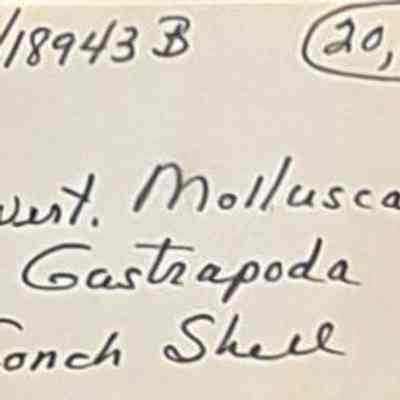 /18943 B 20,
vert. Mollusca
Gastrapoda
Conch Shell